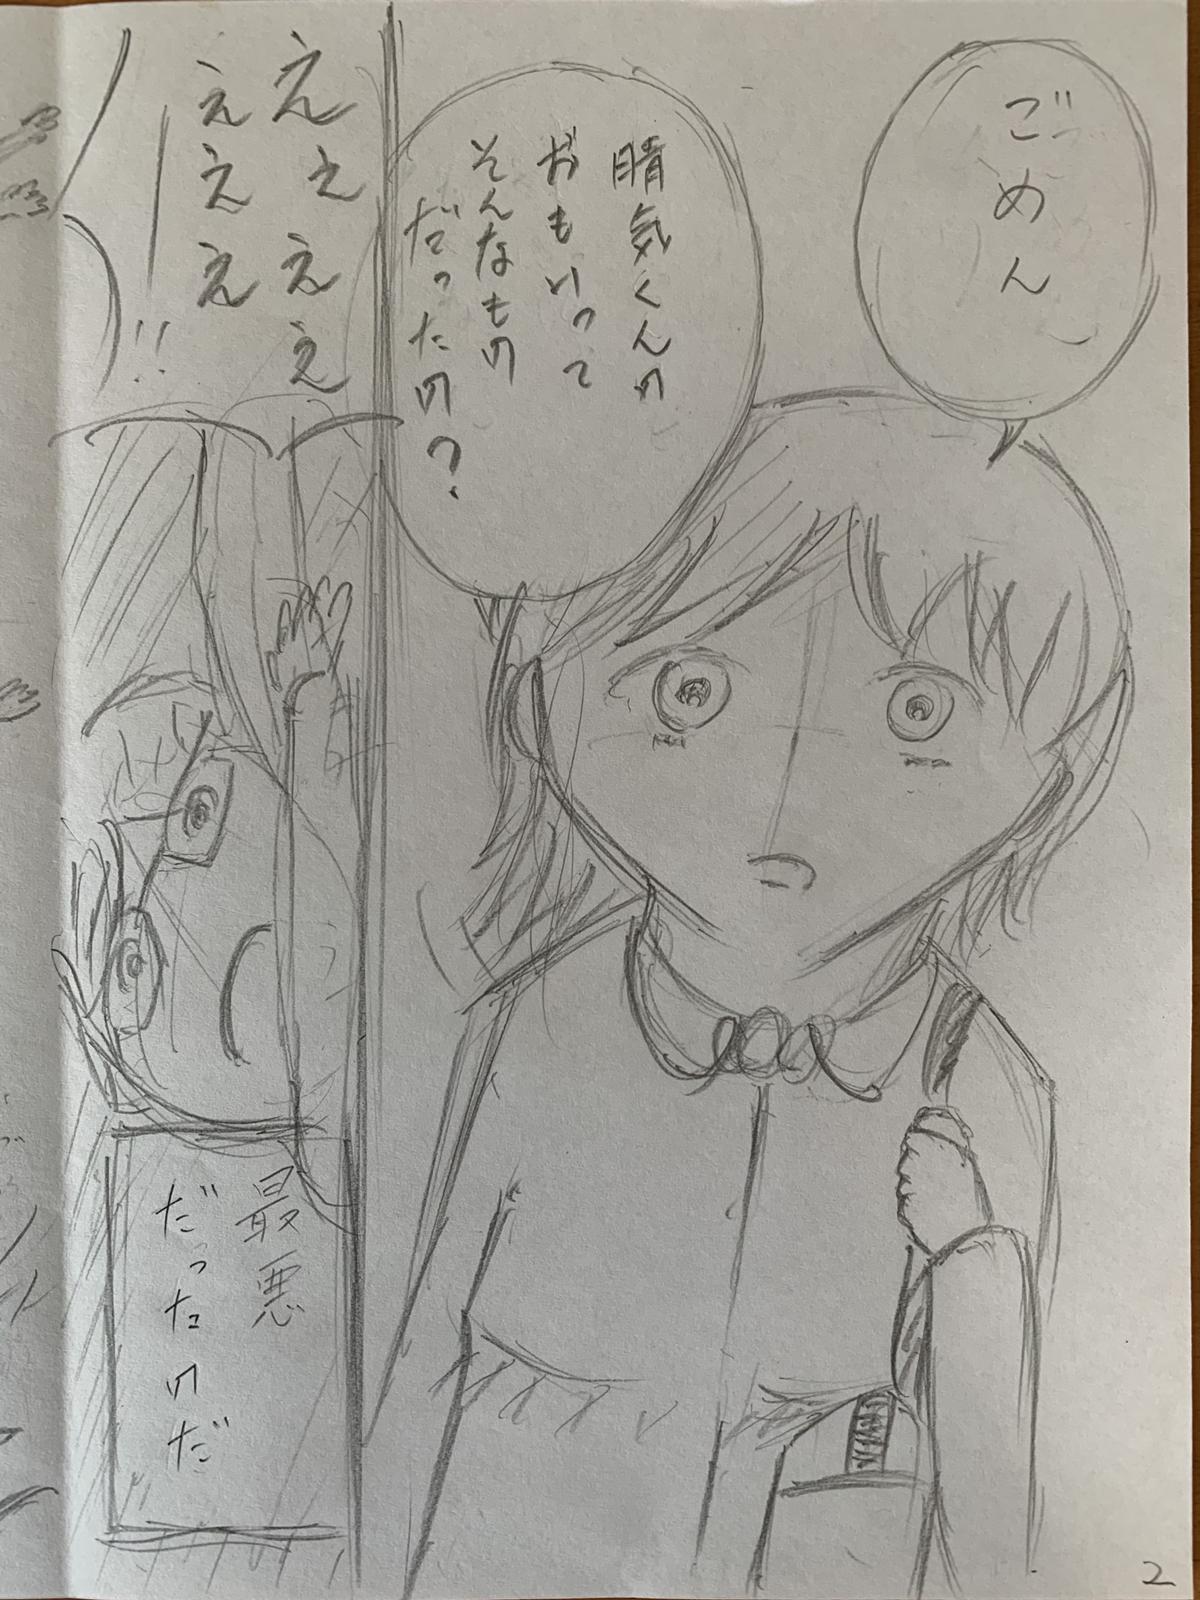 ごめん
晴気くんの
おもいって
そんなもの
だったの？
えぇえぇ
ぇえぇ!!
最悪
だったのだ
2